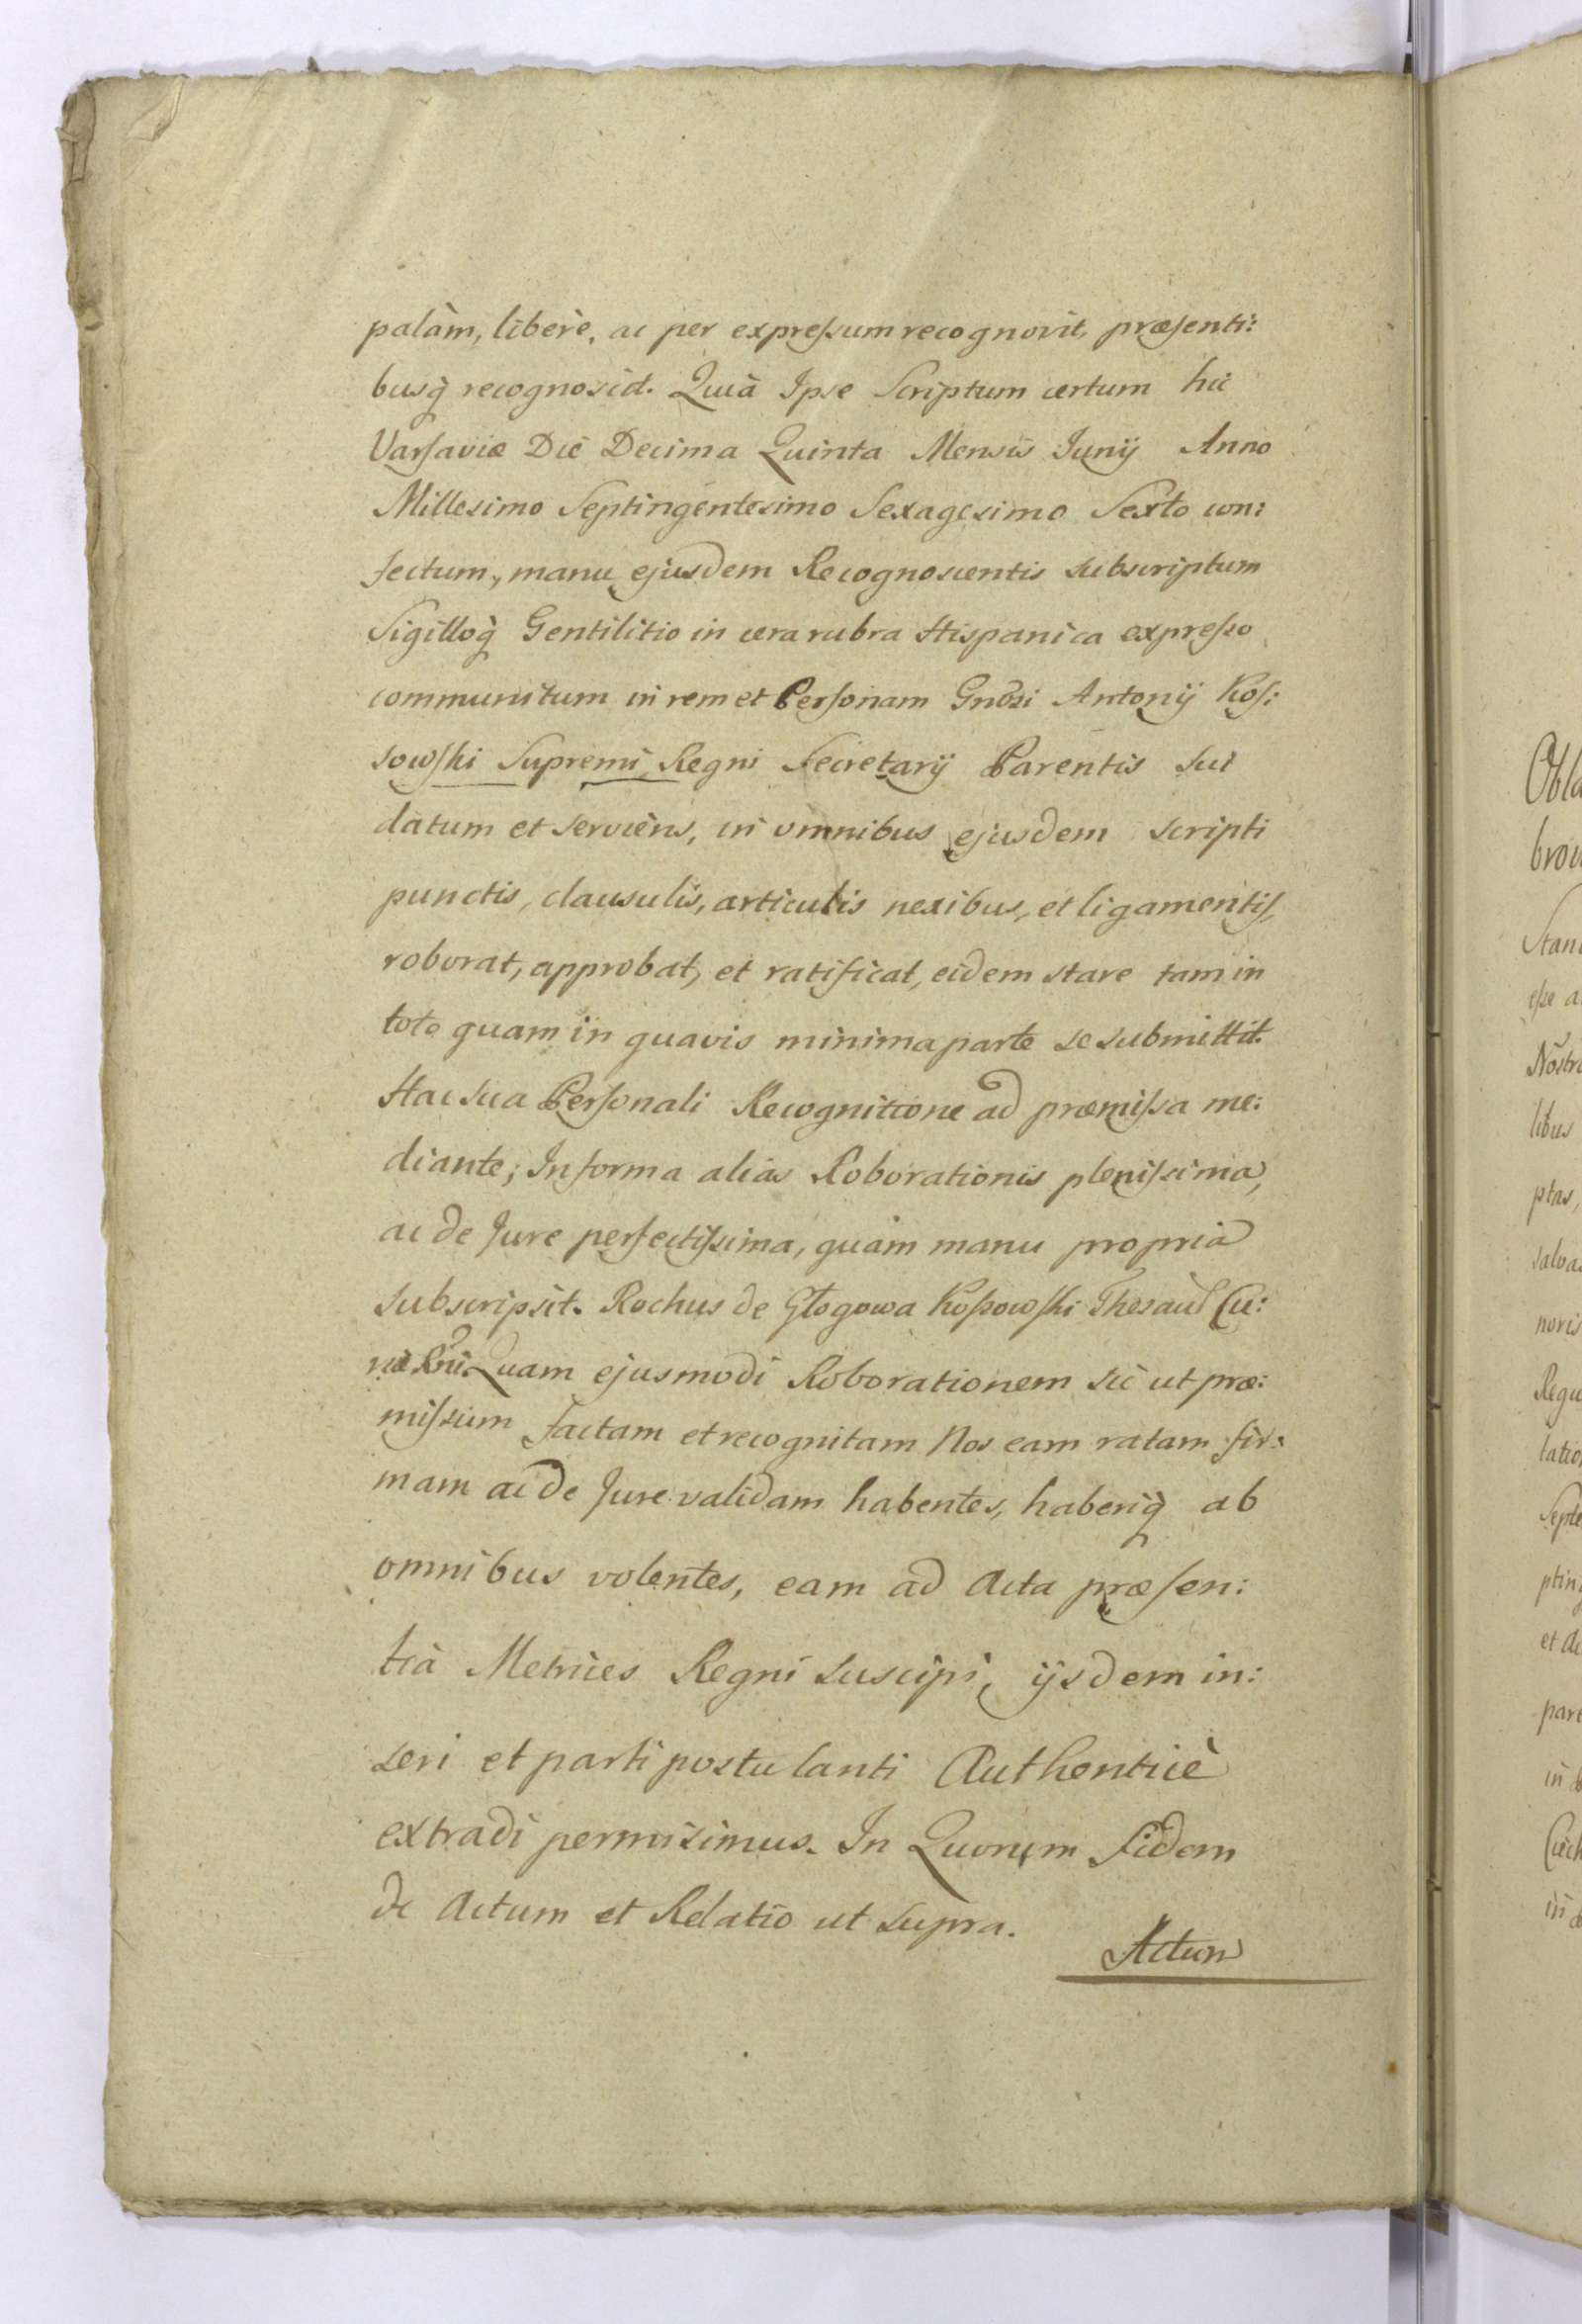 palàm, liberè, ac per expreſsum recognovit, præsenti:
busq̀ recognoscit. Quià Ipse Scriptum certum hic
Varſaviæ Diè Decima Quinta Mensis Junij Anno
Millesimo Septingentesimo Sexagesimo Sexto con:
fectum, manu ejusdem Recognoscentis subscriptum
Sigilloq̀ Gentilitio in cera rubra Hispanica expreſso
communitum in rem et Perſonam Gnoſi Antonij Koſ:
sowſki Supremi Regni Secretarij Parentis Sui
datum et serviens, in omnibus ejusdem scripti
punctis, clausulis, articulis nexibus, et ligamentiſ,
roborat, approbat, et ratificat, eidem stare tam in
toto quam in quavis minima parte se submittit.
Hac sua Perſonali Recognitione ad præmiſsa me:
diante; In forma alias Roborationis pleniſsima,
ac de Jure perfectiſsima, quàm manu propria
subscripsit. Rochus de Głogowa Koſsowſki Thesaur Cu:
riæ Rni. Quam ejusmodi Roborationem sic ut præ:
miſsum factam et recognitam Nos eam ratam fir:
mam ac de Jure validam habentes, haberiq̀ ab
omnibus volentes, eam ad Acta præſen:
tia Metrices Regni suscipi, ijsdem in:
seri et parti postulanti Authenticè
extradi permisimus. In Quorum Fidem
dc Actum et Relatio ut supra.
Actum
Obla
brow
Stan
eſse a
Nostr
libus
ptas,
salva
noris
Regu
tatio
Septe
ptin
et de
part
in
Ciech
in